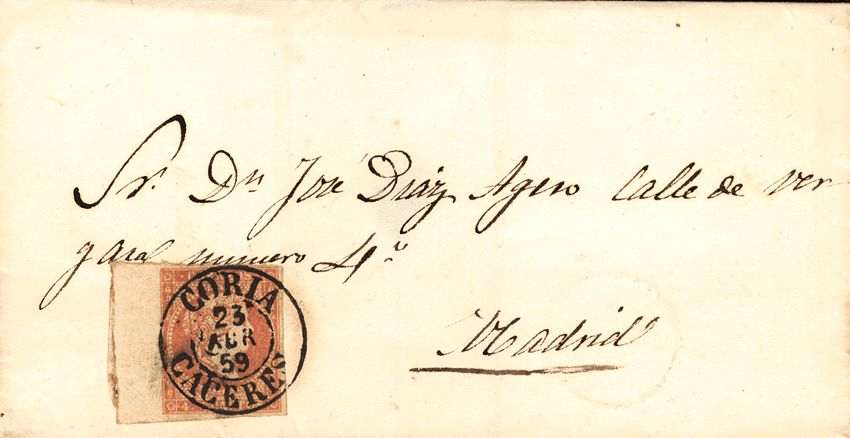 Sr. Dn José Diaz Agero Calle de Ver-
gara numero 4º
Madrid
CORIA
23
ABR
59
CACERES